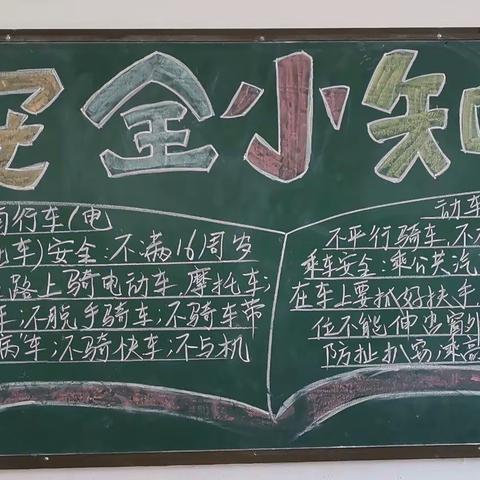 安全小知
自行车(电
车)安全:不满16周岁
路上骑电动车、摩托车;
车;不脱手骑车;不骑车带
病"车;不骑快车;不与机
动车
不平行骑车,不
乘车安全:乘公共汽
在车上要抓好扶手,
任不能伸出窗外
防扯扒窃;乘高